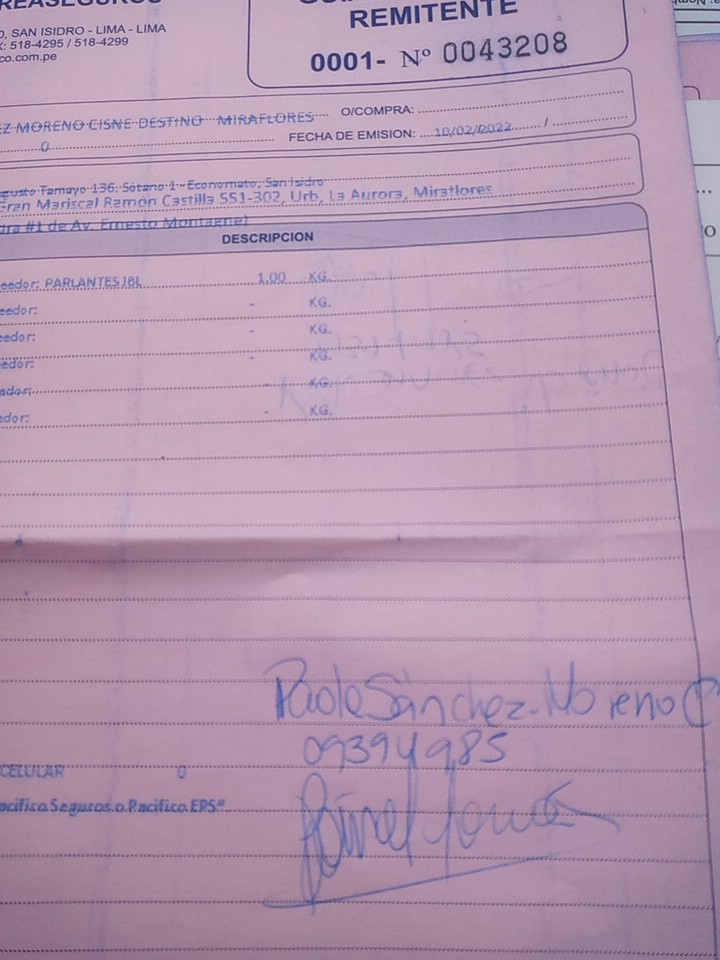 REASEGUROS
REMITENTE
0, SAN ISIDRO - LIMA - LIMA
X: 518-4295 / 518-4299
co.com.pe
0001- Nº 0043208
EZ MORENO CISNE DESTINO MIRAFLORES O/COMPRA:
0 FECHA DE EMISION: 10/02/2022 /
gusto Tamayo 136. Sótano 1 - Economato, San Isidro
Gran Mariscal Ramón Castilla 551-302, Urb, La Aurora, Miraflores
dra #1 de Av. Ernesto Montagne)
DESCRIPCION
eedor: PARLANTES JBL 1.00 KG.
eedor: - KG.
eedor: - KG.
edor: - KG.
ador: - KG.
edor: - KG.
Paola Sánchez-Moreno C
09394985
CELULAR 0
acífico Seguros o Pacífico EPS"